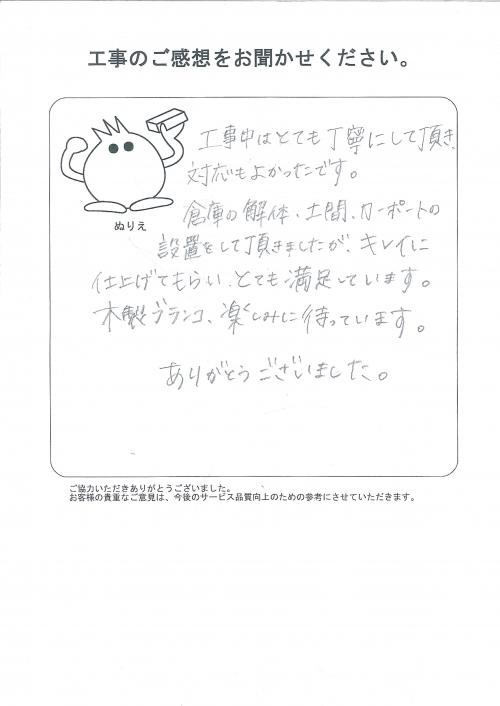 工事のご感想をお聞かせください。
工事中はとても丁寧にして頂き、
対応もよかったです。
ぬりえ
倉庫の解体、土間、カーポートの
設置をして頂きましたが、キレイに
仕上げてもらい、とても満足しています。
木製ブランコ、楽しみに待っています。
ありがとうございました。
ご協力いただきありがとうございました。
お客様の貴重なご意見は、今後のサービス品質向上のための参考にさせていただきます。